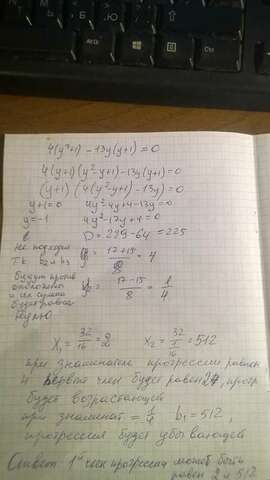 4(y³+1) − 13y(y+1)=0
4(y+1)(y²−y+1)−13y(y+1)=0
(y+1)(4(y²−y+1)−13y)=0
y+1=0 4y²−4y+4−13y=0
y=−1 4y²−17y+4=0
D=289−64=225
не подходит
т.к. b2 и b3
будут противо
и их сумма
будет равна
нулю
y = 17+15/8 = 4
y = 17−15/8 = 1/4
x₁ = 32/16 = 2 x₂ = 32/1/16 = 512
при знаменателе прогрессии равном
4 первый член будет равен 2, прогр
будет возрастающей
при знаменат = 1/4 b₁=512,
прогрессия будет убывающей
Ответ 1ый член прогрессии может быть
равен 2 и 512